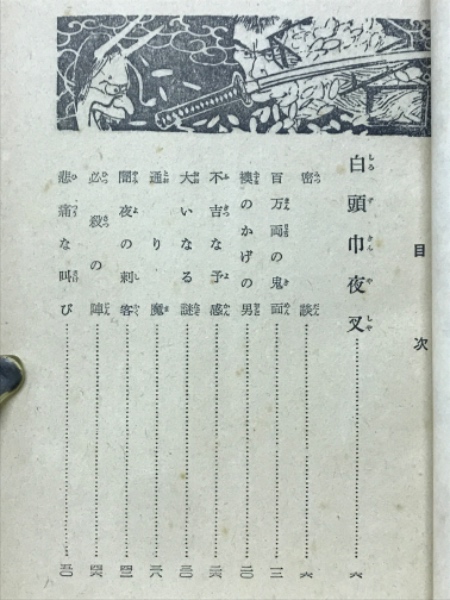 目次
白頭巾夜叉 六
密談 六
百万両の鬼面 一二
襖のかげの男 二〇
不吉な予感 二六
大いなる謎 三〇
通り魔 三八
闇夜の刺客 四二
必殺の陣 四六
悲痛な叫び 五〇